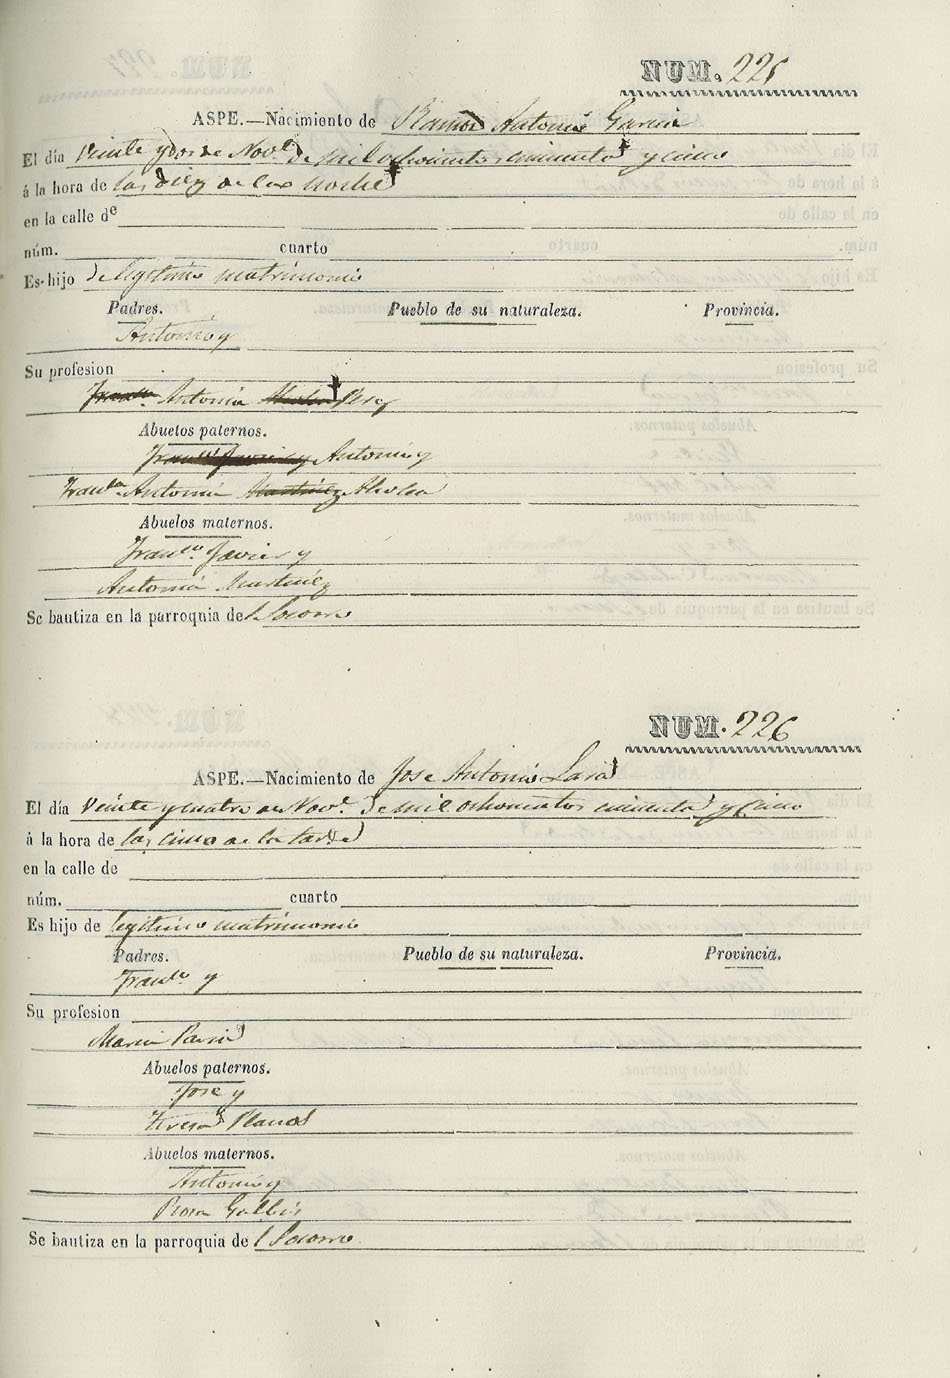 NUM. 225
ASPE.—Nacimiento de Ramon Antonio Garcia
El día veinte y dos de Nov.e de mil ochocientos cincuenta y cinco
á la hora de las diez de la noche
en la calle de
núm. cuarto
Es hijo de legitimo matrimonio
Padres. Pueblo de su naturaleza. Provincia.
Antonio y
Su profesion
Fran.ca Antonia Perez
Abuelos paternos.
Antonio y
Fran.ca Antonia Martinez
Abuelos maternos.
Fran.co Javier y
Antonia Martinez
Se bautiza en la parroquia del Socorro
NUM. 226
ASPE.—Nacimiento de Jose Antonio Lara
El día veinte y cuatro de Nov.e de mil ochocientos cincuenta y cinco
á la hora de las cinco de la tarde
en la calle de
núm. cuarto
Es hijo de legitimo matrimonio
Padres. Pueblo de su naturaleza. Provincia.
Fran.co y
Su profesion
Maria
Abuelos paternos.
Jose y
Teresa Planas
Abuelos maternos.
Antonio y
Rosa Galbis
Se bautiza en la parroquia del Socorro